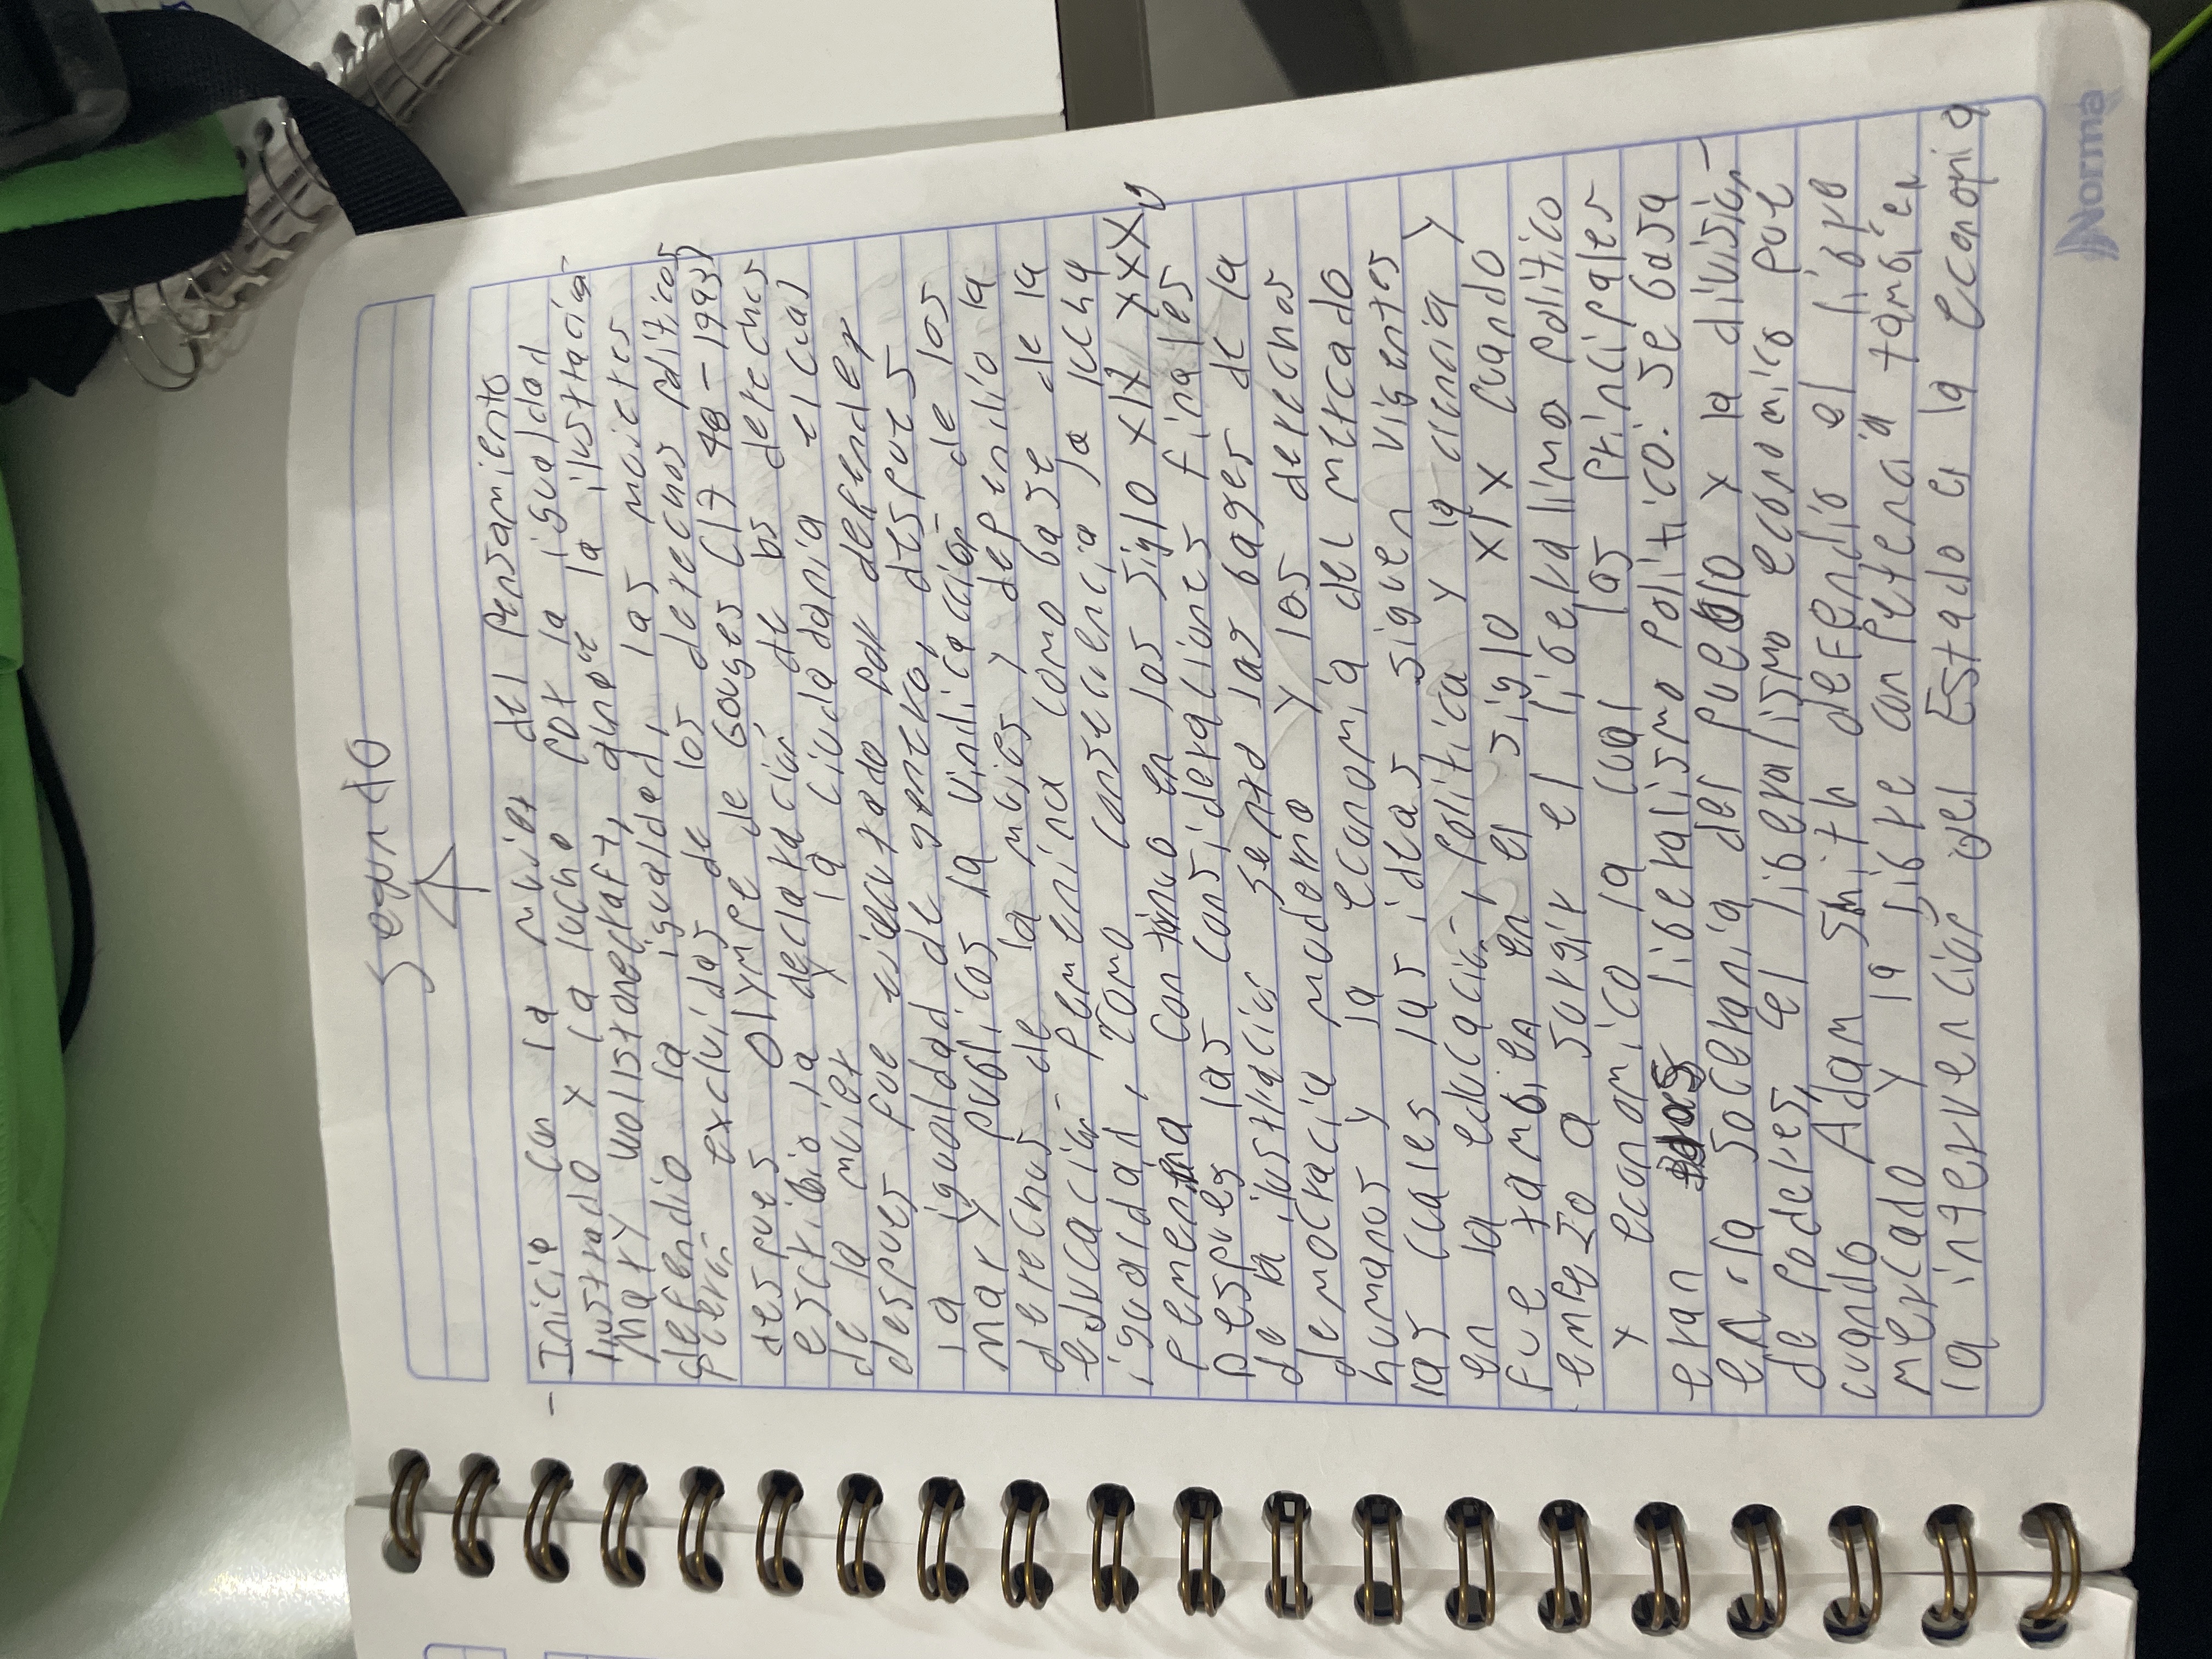 Segundo
- Inicio con la mujer del Pensamiento
ilustrado x la lucha por la igualdad
Mary Wollstonecraft, aunque la ilustración
defendio la igualdad, las mujeres
eran excluidas de los derechos politicos
despues Olympe de Gouges (1748-1793)
escribio la declaración de los derechos
de la mujer y la ciudadania el cual
despues fue ejecutada por defender
la igualdad de genero, despues los
mar y publicos la vindicación de los
derechos de la mujer y defendio la
educación femenina como base de la
igualdad, como consecuencia la lucha
femenina continuo en los siglo XIX XX y
Despues las consideraciones finales
de la ilustración sento las bases de la
democracia moderna y los derechos
humanos y la economia del mercado
las cuales las ideas siguen vigentes
en la educación, politica y la ciencia y
fue tambien en el siglo XIX x cuando
empezo a surgir el liberalismo politico
x economico la cual las principales
eran liberalismo politico: se basa
en la soberania del pueblo x la división
de poderes, el liberalismo economico fue
cuando Adam Smith defendio el libre
mercado y la libre competencia tambien
la intervención del Estado en la economia
Norma